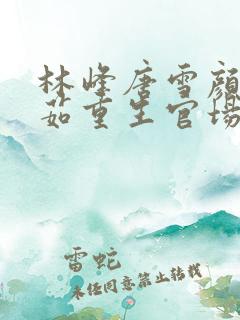 林峰唐雪颜
茹重生官场
雷蛇
未经同意禁止转载